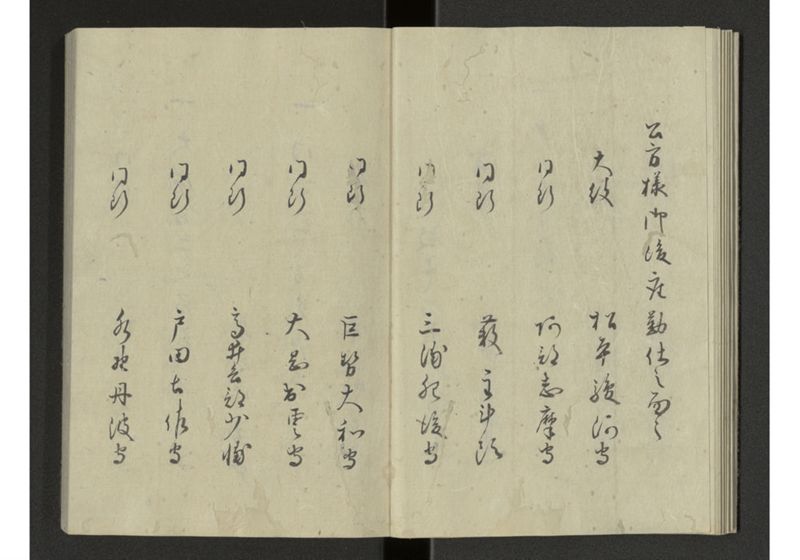 公方様御後座勤仕之面々
大紋 松平駿河守
同断 阿部志摩守
同断 藪主計頭
同断 三浦肥後守
同断 巨勢大和守
同断 大嶋出雲守
同断 高井兵部少輔
同断 戸田土佐守
同断 水野丹波守